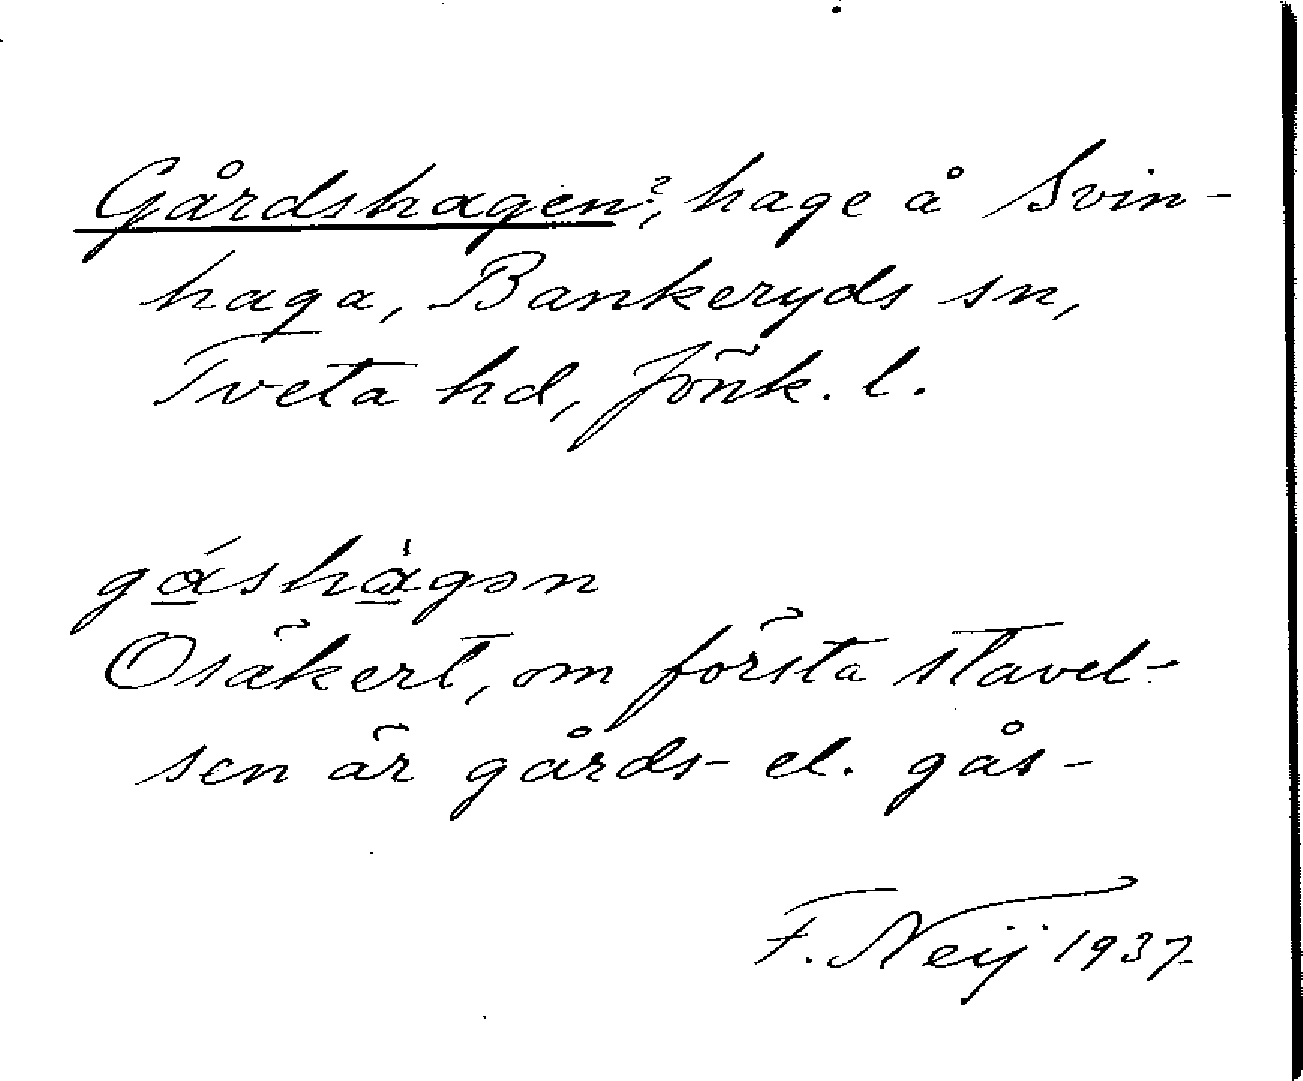 Gårdshagen?, hage å Svin-
haga, Bankeryds sn,
Tveta hd, Jönk. l.
gáshàgən
Osäkert, om första stavel-
sen är gårds- el. gås-
F. Neij 1937.